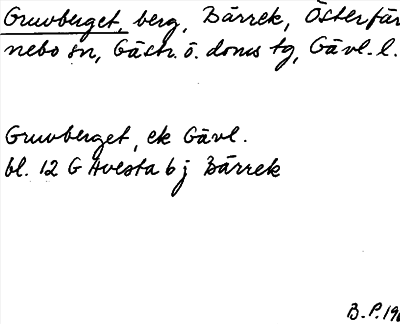 Gruvberget, berg, Bärrek, Österfär
nebo sn, Gästr. ö. doms tg, Gävl. l.
Gruvberget, ek Gävl.
bl. 12 G Avesta 6 j Bärrek
B. P. 196